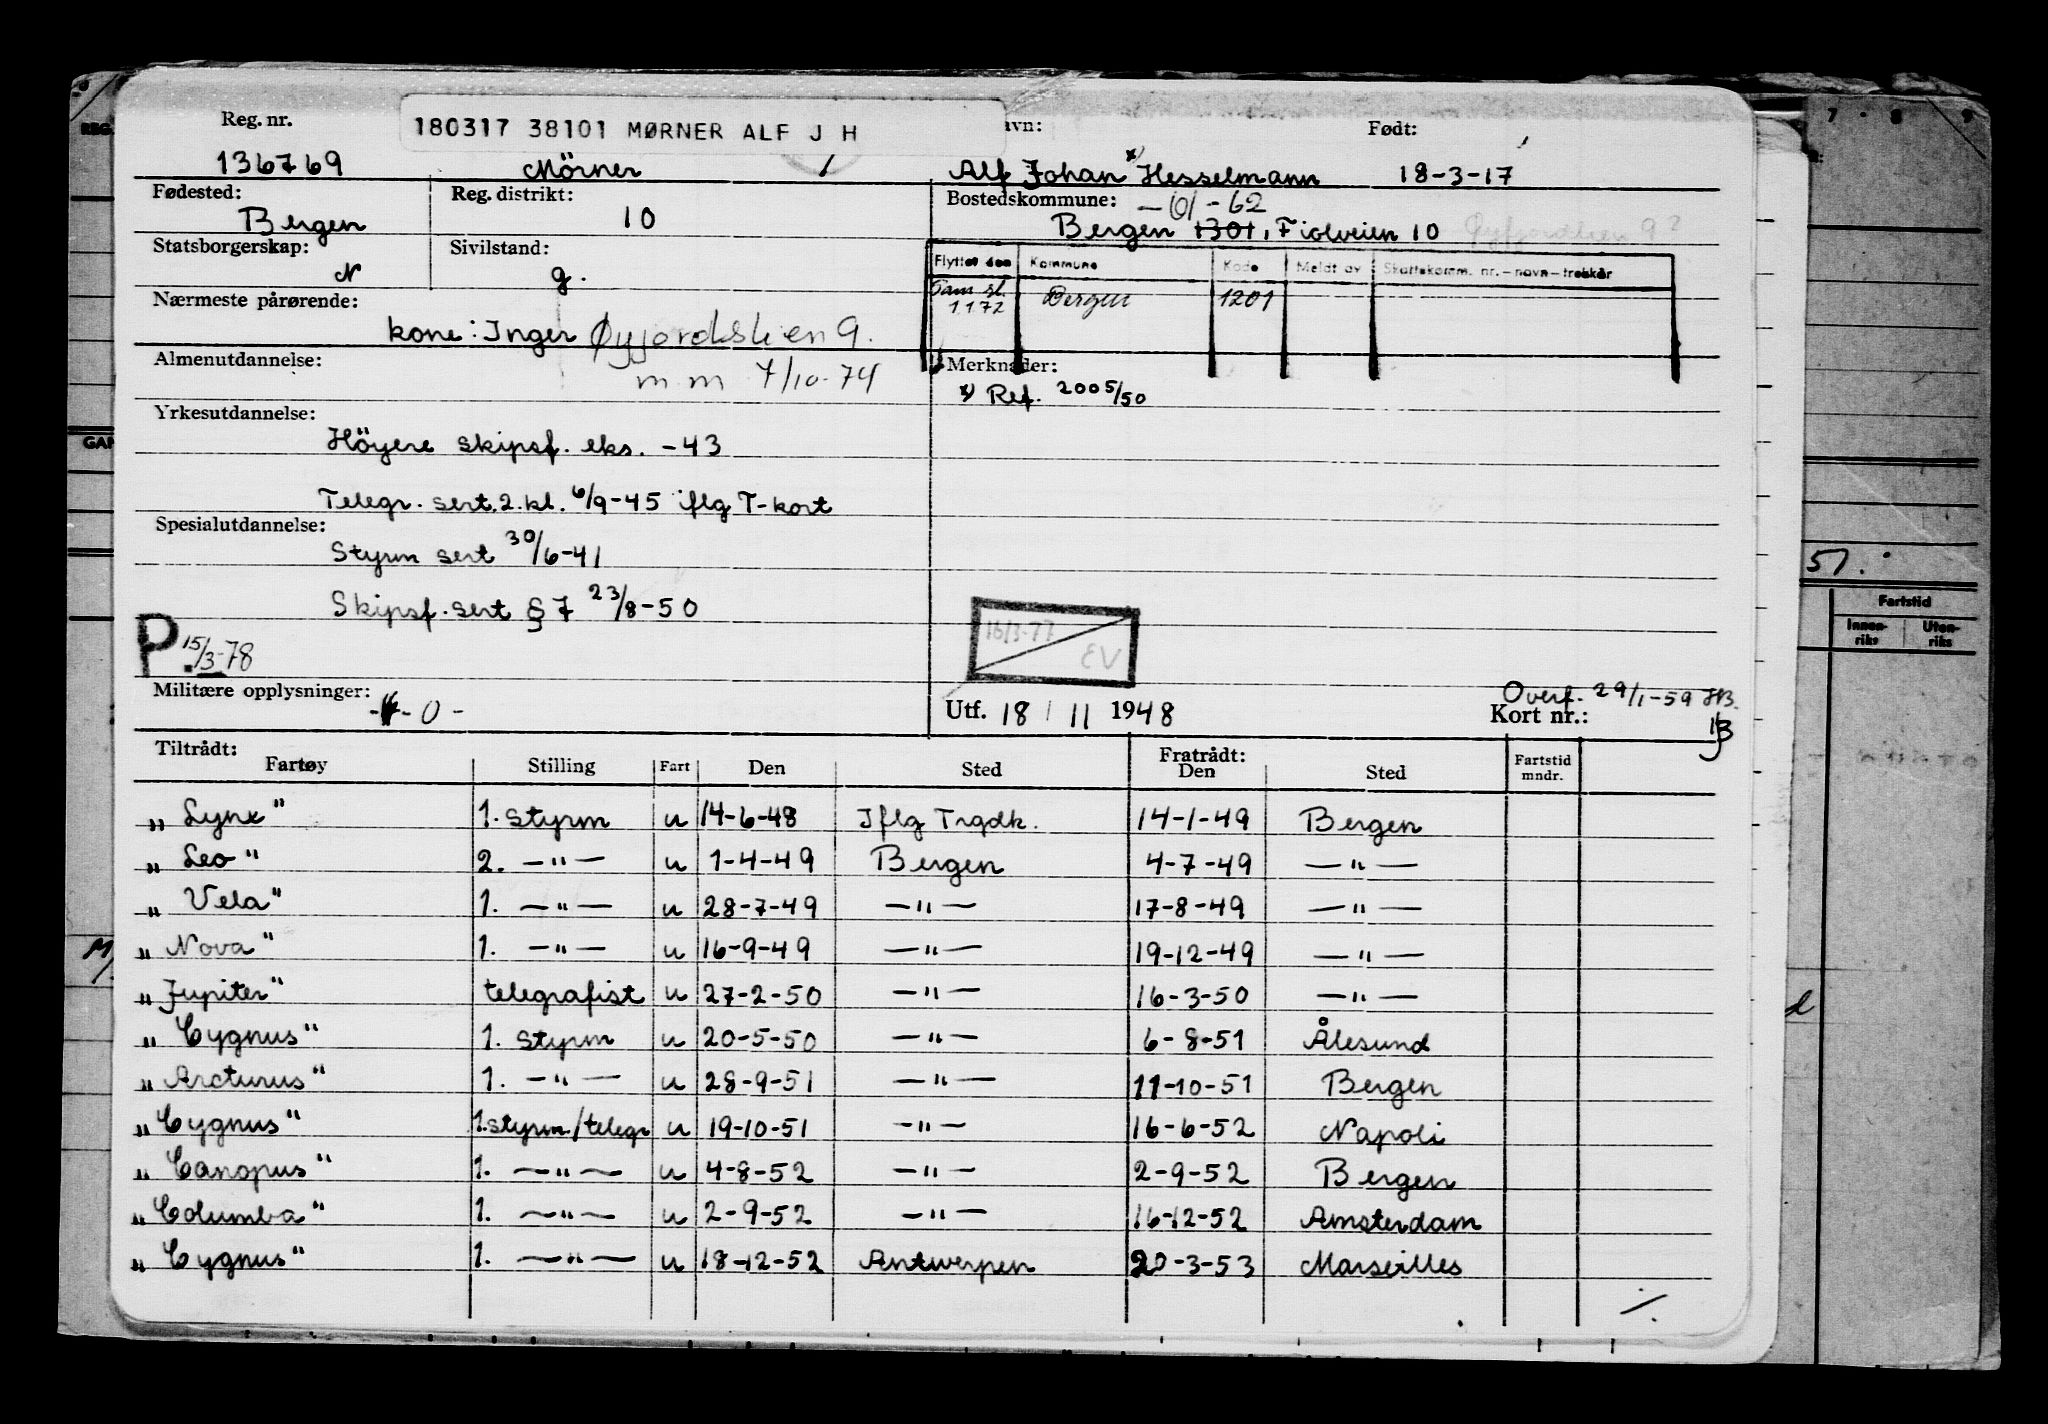 Reg. nr. 180317 38101 MØRNER ALF J H Født:
136769 Mörner Alf Johan x) Hesselmann 18-3-17
Fødested: Reg. distrikt: Bostedskommune: -101-62
Bergen 10 Bergen 1301, Fiolveien 10
Statsborgerskap: Sivilstand: Flyttet den Kommune Kode Meldt av Skattekomm. nr.-navn-trekkår
N g.
Nærmeste pårørende: 1172 Bergen 1201
kone: Inger Øyjordslien 9.
Almenutdannelse: Merknader:
m m 7/10-74 x) Ref. 2005/50
Yrkesutdannelse:
Höyere skipsf. eks. -43
Telegr. sert. 2. kl. 6/9-45 iflg T-kort
Spesialutdannelse:
Styrm sert 30/6-41
Skipsf. sert § 7 23/8-50
P. 15/3-78 16/3-77 EV
Militære opplysninger: Overf. 29/1-59
-0- Utf. 18/11 1948 Kort nr.:
Tiltrådt: Fratrådt:
Fartøy Stilling Fart Den Sted Den Sted Fartstid mndr.
„Lynx" 1. styrm u 14-6-48 Iflg Trgdk. 14-1-49 Bergen
„Leo" 2. -"- u 1-4-49 Bergen 4-7-49 -"-
„Vela" 1. -"- u 28-7-49 -"- 17-8-49 -"-
„Nova" 1. -"- u 16-9-49 -"- 19-12-49 -"-
„Jupiter" telegrafist u 27-2-50 -"- 16-3-50 -"-
„Cygnus" 1. styrm u 20-5-50 -"- 6-8-51 Ålesund
„Arcturus" 1. -"- u 28-9-51 -"- 11-10-51 Bergen
„Cygnus" 1.styrm/telegr u 19-10-51 -"- 16-6-52 Napoli
„Canopus" 1. -"- u 4-8-52 -"- 2-9-52 Bergen
„Columba" 1. -"- u 2-9-52 -"- 16-12-52 Amsterdam
„Cygnus" 1. -"- u 18-12-52 Antwerpen 20-3-53 Marseilles
7 8 9
51.
Fartstid
Innen-riks Uten-riks